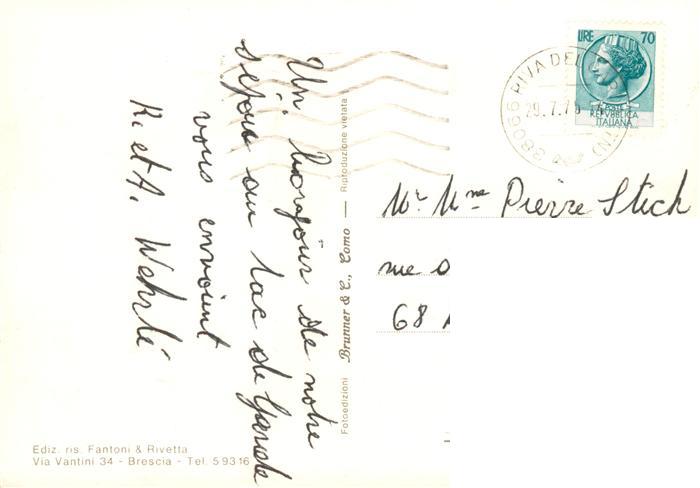 Un bonjour de notre
séjour au lac de Garde
vous envoient
R. et A. Wehrlé
Mr. Mme Pierre Stich
rue
68
LIRE 70
POSTE
REPVBBLICA
ITALIANA
38066 RIVA DEL
29.7.7
(TN)
Fotoedizioni Brunner & C., Como — Riproduzione vietata
Ediz. ris. Fantoni & Rivetta
Via Vantini 34 - Brescia - Tel. 59316